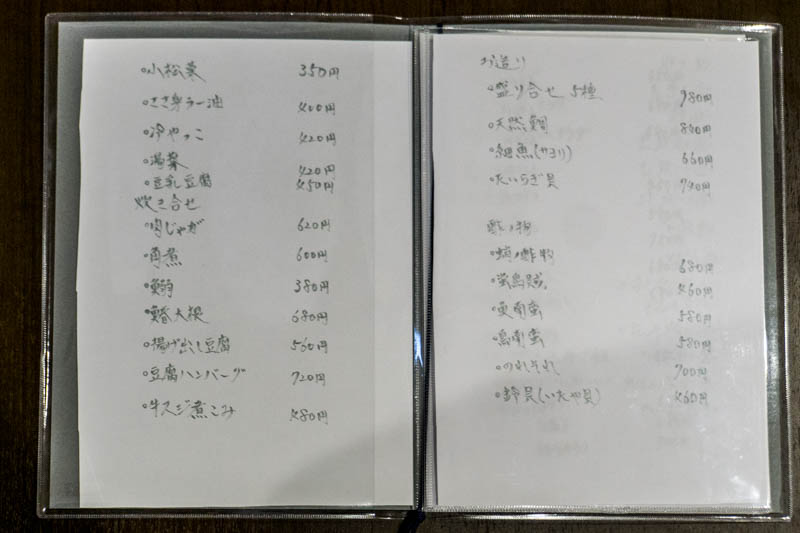 °小松菜 350円
°ささ身ラー油 400円
°冷やっこ 420円
°湯葉 420円
°豆乳豆腐 450円
炊き合せ
°肉じゃが 620円
°角煮 600円
380円
大根 680円
°揚げ出し豆腐 560円
°豆腐ハンバーグ 720円
°牛スジ煮こみ 480円
お造り
°盛り合せ 5種 980円
°天然鯛 840円
°細魚(サヨリ) 660円
°たいらぎ貝 740円
酢ノ物
°蛸ノ酢物 680円
°蛍烏賊 460円
南蛮 580円
南蛮 580円
°のれそれ 700円
(いたや貝) 460円